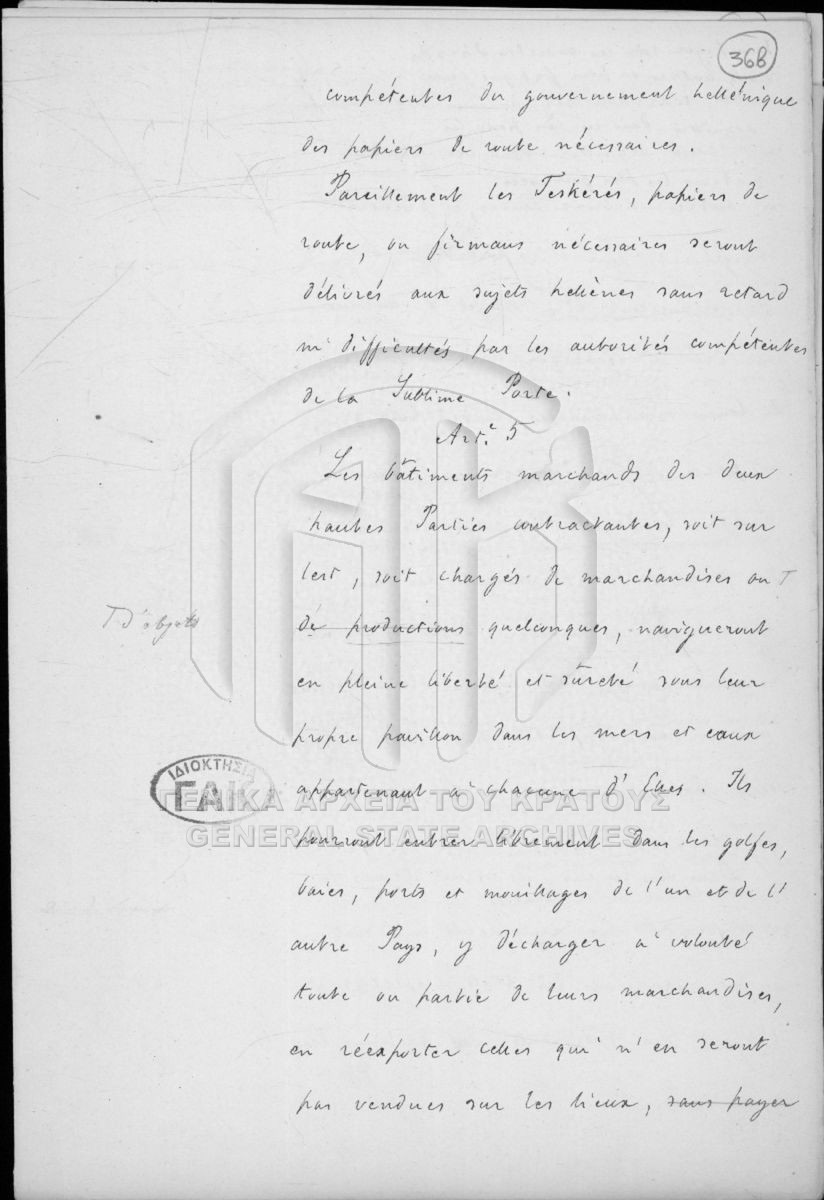 368
compétentes du gouvernement hellénique
des papiers de route nécessaires.
Pareillement les Teskérés, papiers de
route, ou firmans nécessaires seront
délivrés aux sujets hellènes sans retard
ni difficultés par les autorités compétentes
de la Sublime Porte.
Art.e 5
Les bâtiments marchands des deux
hautes Parties contractantes, soit sur
lest, soit chargés de marchandises ou T
T d'objets
de productions quelconques, navigueront
en pleine liberté et sûreté sous leur
propre pavillon dans les mers et eaux
appartenant à chacune d'Elles. Ils
pourront entrer librement dans les golfes,
baies, ports et mouillages de l'un et de l'
autre Pays, y décharger à volonté
toute ou partie de leurs marchandises,
en réexporter celles qui n'en seront
pas vendues sur les lieux, sans payer
ΙΔΙΟΚΤΗΣΙΑ
ΓΑΚ
ΓΕΝΙΚΑ ΑΡΧΕΙΑ ΤΟΥ ΚΡΑΤΟΥΣ
GENERAL STATE ARCHIVES